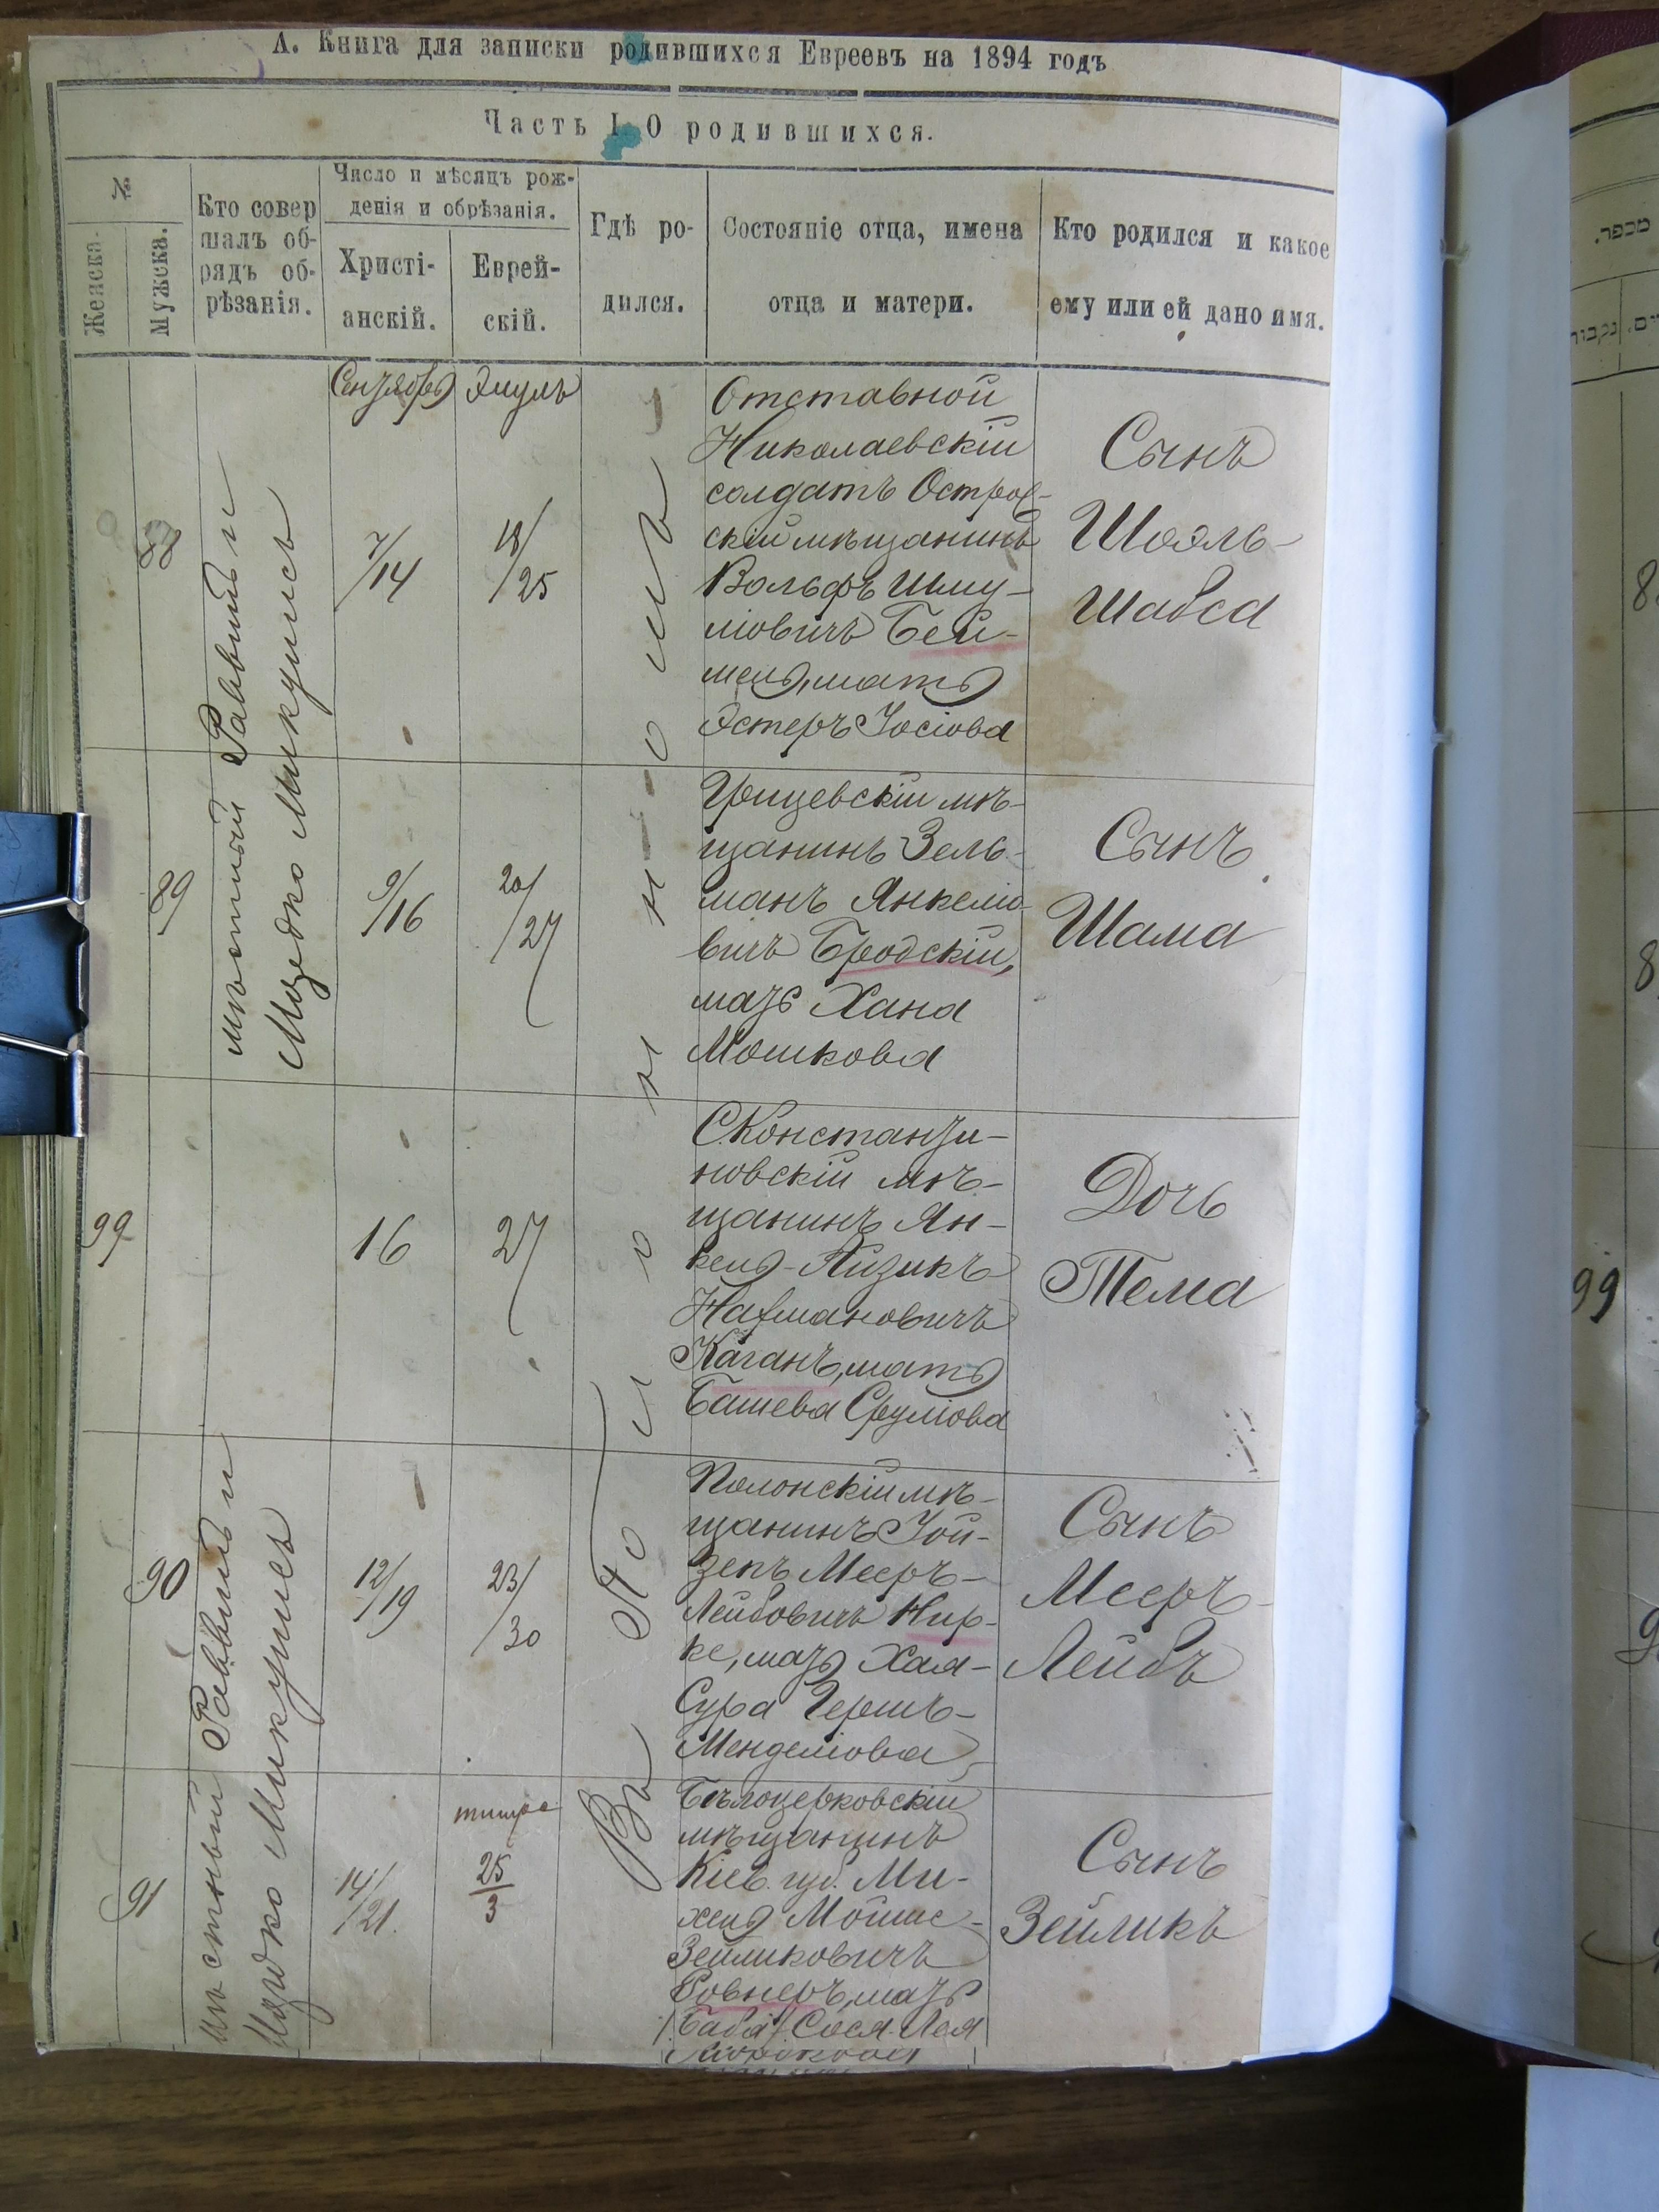 А. Книга для записки родившихся Евреевъ на 1894 годъ
Часть I. О родившихся.
№
Женска.
Мужска.
Кто совер
шалъ об-
рядъ об-
рѣзанія.
Число и мѣсяцъ рож-
денія и обрѣзанія.
Христі-
анскій.
Еврей-
скій.
Гдѣ ро-
дился.
Состояніе отца, имена
отца и матери.
Кто родился и какое
ему или ей дано имя.
Сентября
Элулъ
88
мѣстный Раввинъ и
Мордко Микунисъ
7/14
18/25
Въ Полонномъ
Отставной
Николаевскій
солдатъ Остров-
скій мѣщанинъ
Вольфъ Шму-
ліовичъ Бей-
мель, мать
Эстеръ Іосіова
Сынъ
Шоэль-
Шабса
89
9/16
20/27
Грицевскій мѣ-
щанинъ Зель-
манъ Янкеліо-
вичъ Бродскій,
мать Хана
Мошкова
Сынъ
Шама
99
16
27
СКонстанти-
новскій мѣ-
щанинъ Ян-
кель-Айзикъ
Нахмановичъ
Каганъ, мать
Башева Сруліова
Дочь
Тема
90
мѣстный Раввинъ и
Мордко Микунисъ
12/19
23/30
Полонскій мѣ-
щанинъ Іой-
зепъ Мееръ-
Лейбовичъ Нир-
ке, мать Хая-
Сура Гершъ-
Менделіова
Сынъ
Мееръ-
Лейбъ
91
14/21.
тишре
25
3
Бѣлоцерковскій
мѣщанинъ
Кіев. губ. Ми-
хель Мойше-
Зейликовичъ
Ровнеръ, мать
Сося-Лея
Сынъ
Зейликъ
99